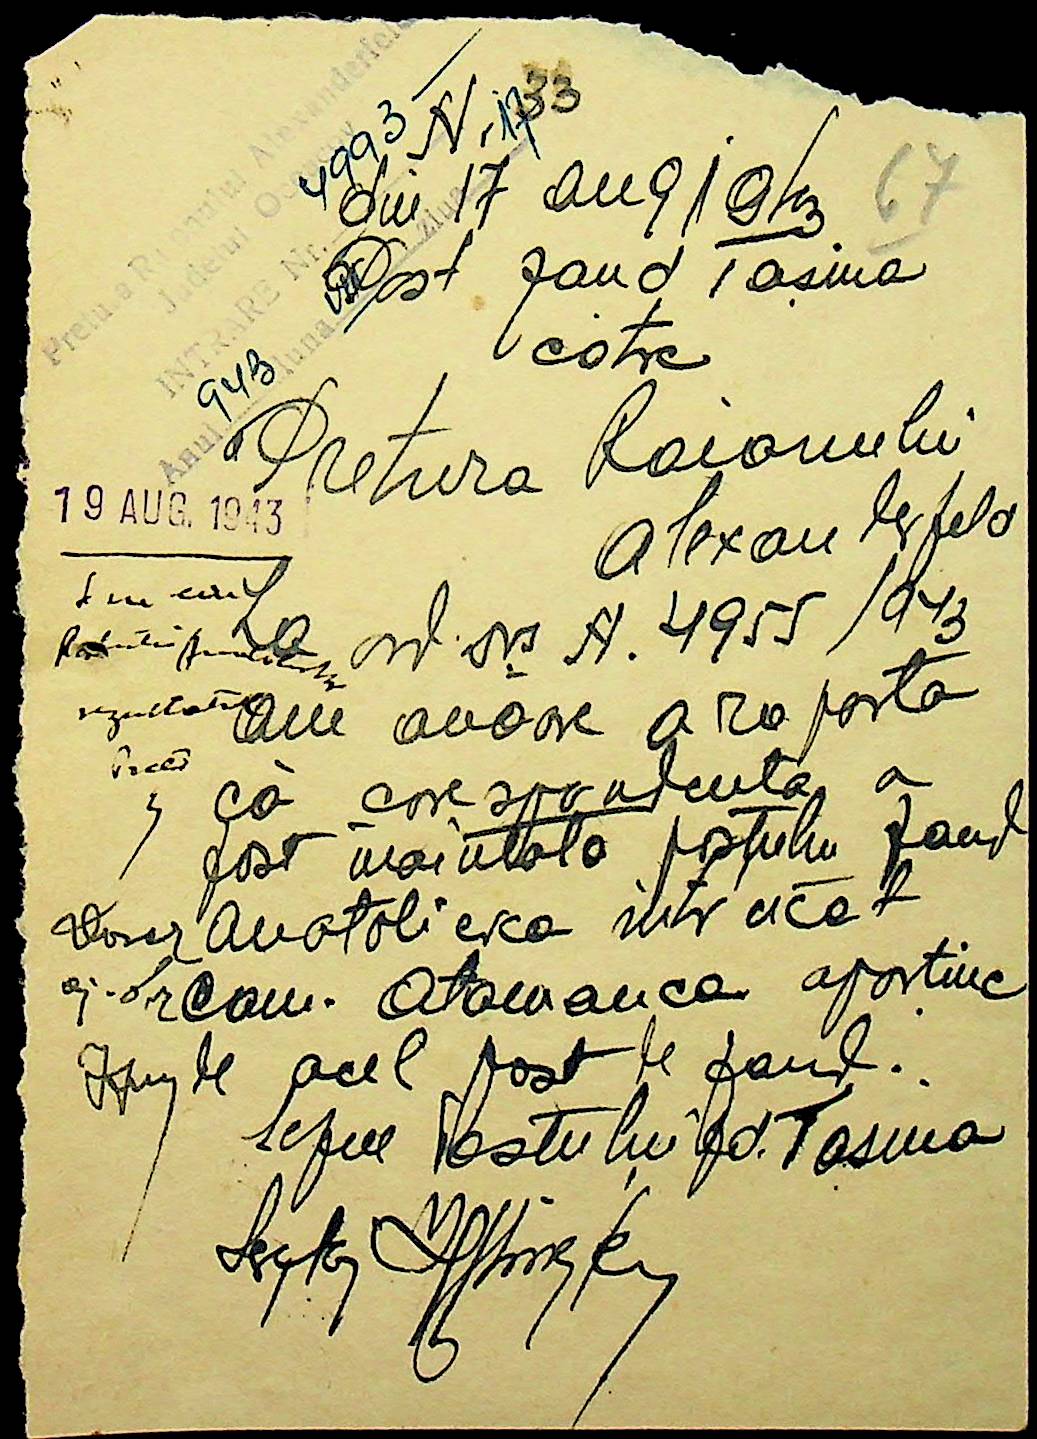 Pretura Raionului Alexanderfeld
Județul Oceacov
INTRARE Nr. 4993
Anul 943 luna VIII Ziua 17
19 AUG. 1943
67
N. 33
din 17 aug 1943
Post jand Tașina
către
Pretura Raionului
Alexanderfeld
La ord. dvs N. 4955/943
am onoare a raporta
că corespondenta a
fost inaintată postului jand
Anatolievca intrucât
Com. Atamanca aparține
de acel post de jand.
Șeful Postului Jd. Tașina